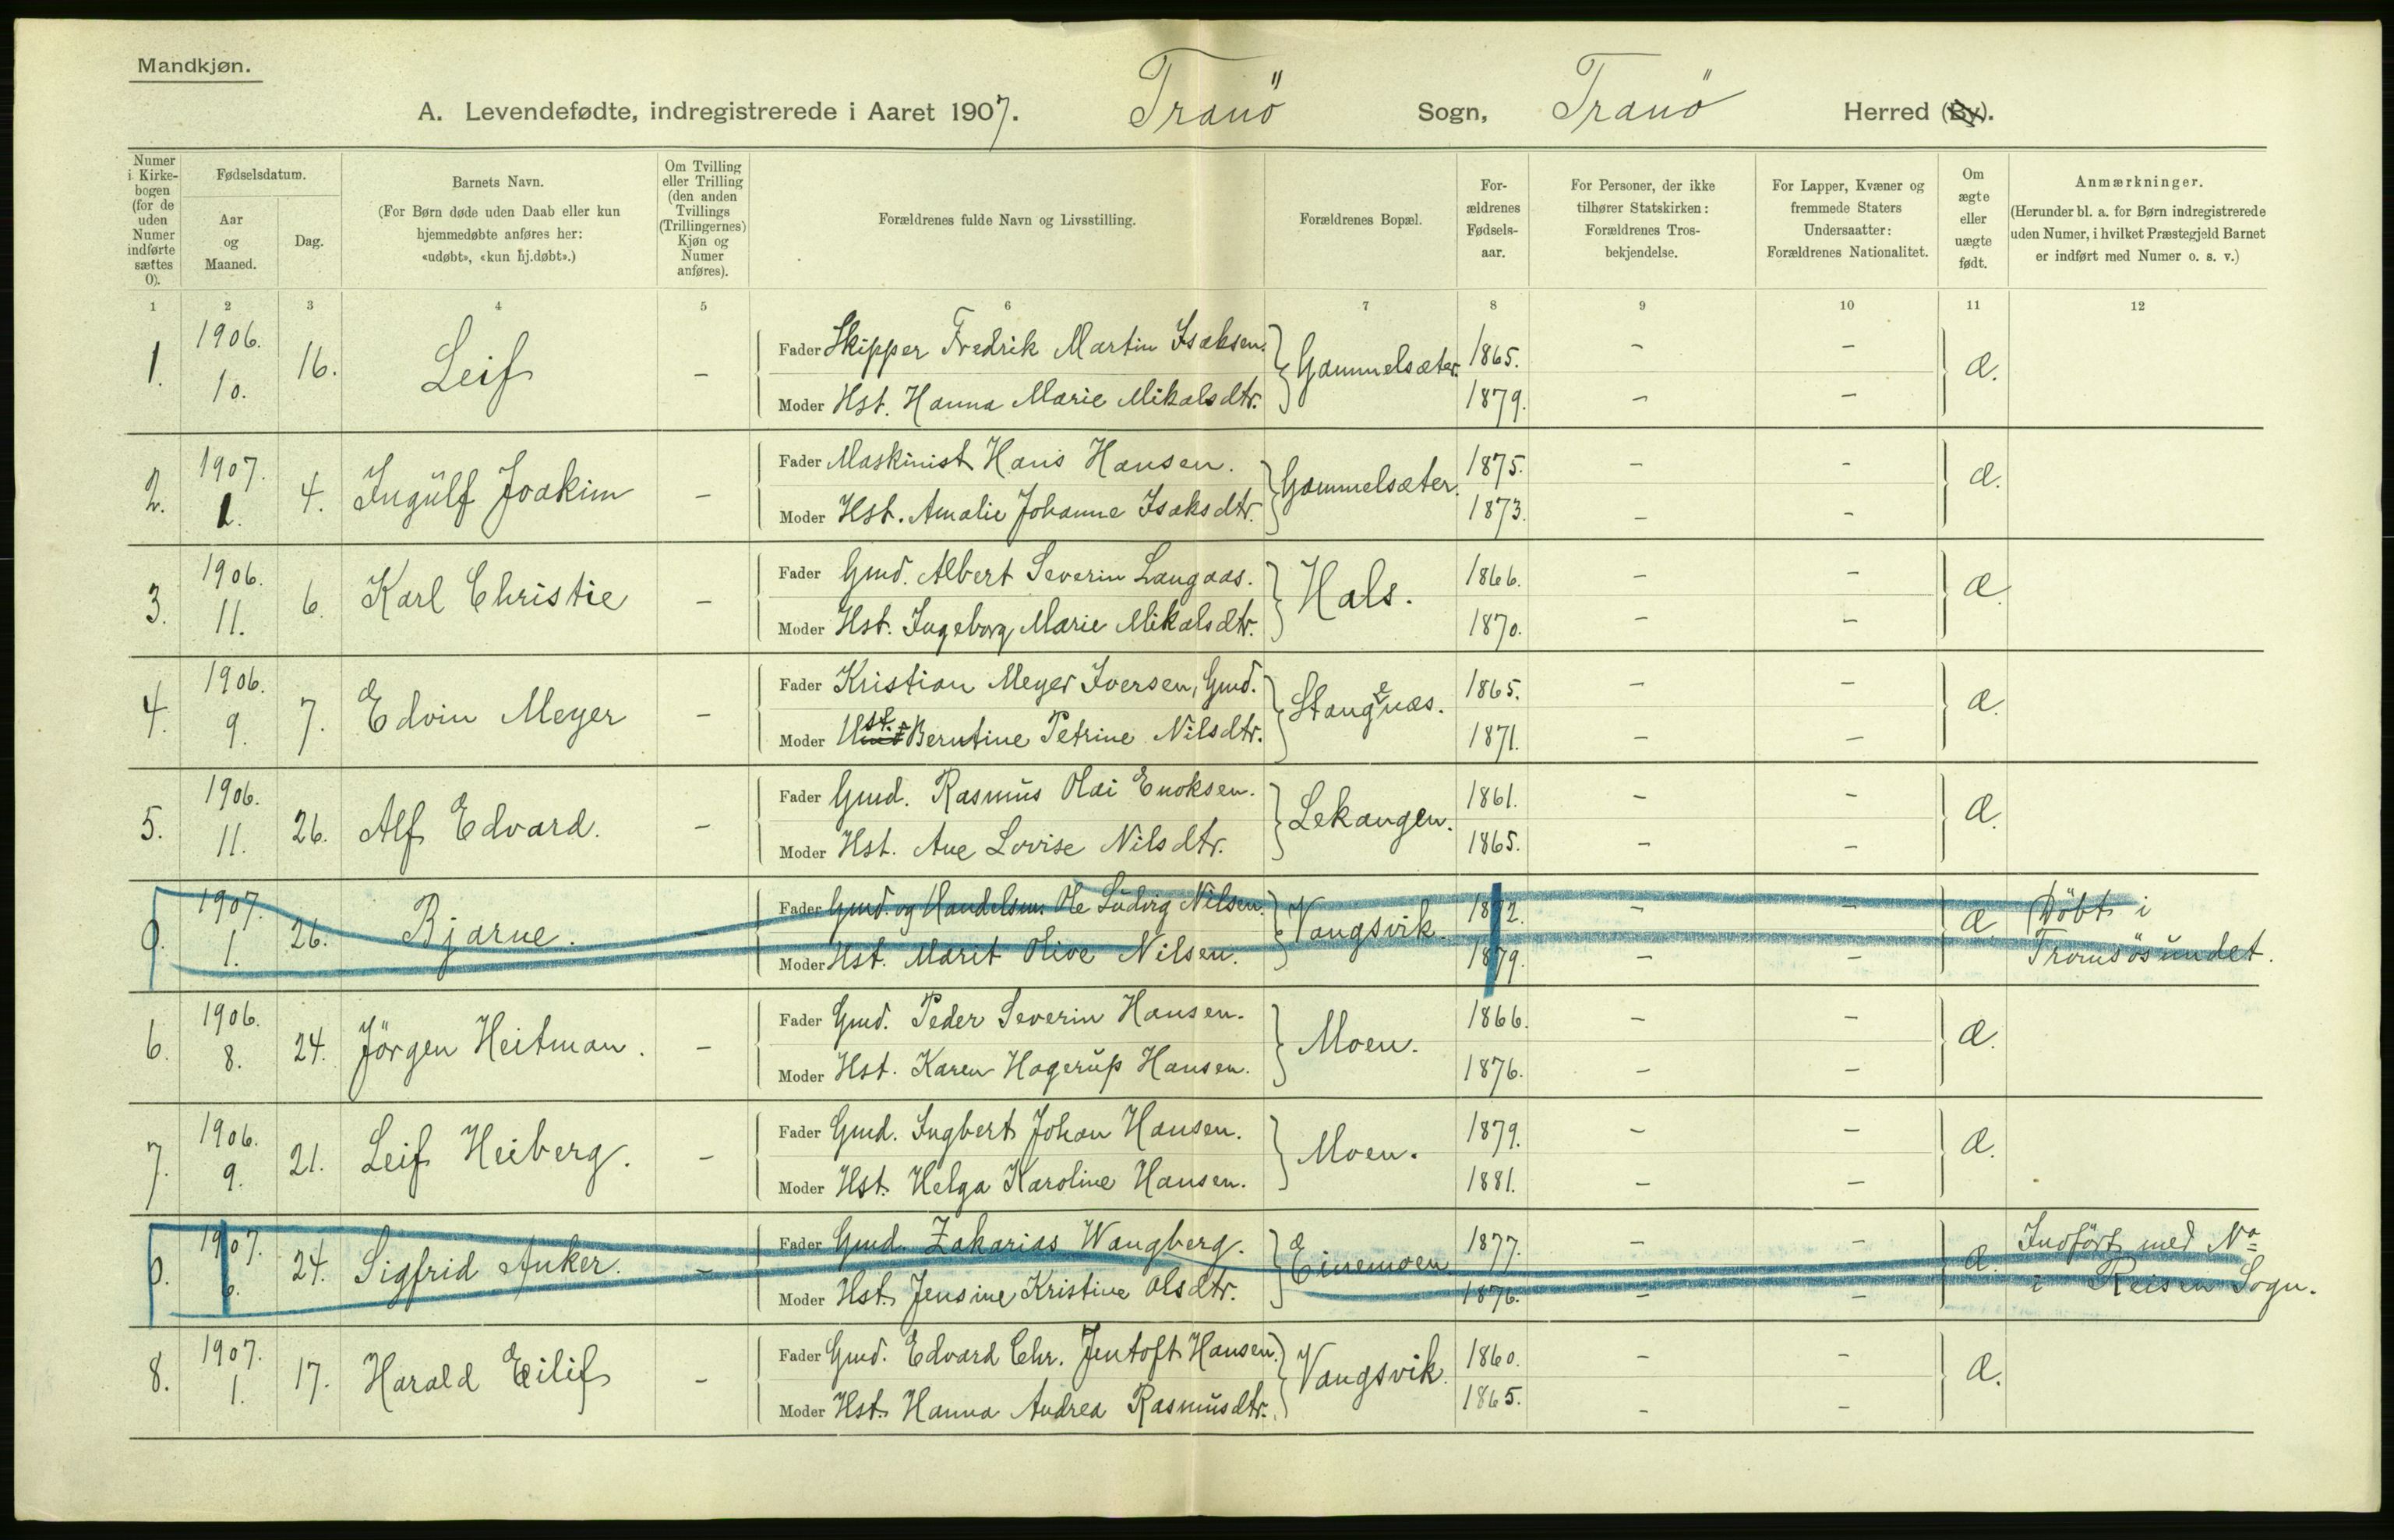 Mandkjøn.
A. Levendefødte, indregistrerede i Aaret 1907. Tranö Sogn, Tranö Herred (By).
Numer i Kirkebogen (for de uden Numer indførte sættes 0).
Fødselsdatum.
Aar og Maaned.
Dag.
Barnets Navn.
(For Børn døde uden Daab eller kun hjemmedøbte anføres her: «udøbt», «kun hj.døbt».)
Om Tvilling eller Trilling (den anden Tvillings (Trillingernes) Kjøn og Numer anføres).
Forældrenes fulde Navn og Livsstilling.
Forældrenes Bopæl.
Forældrenes Fødselsaar.
For Personer, der ikke tilhører Statskirken: Forældrenes Trosbekjendelse.
For Lapper, Kvæner og fremmede Staters Undersaatter: Forældrenes Nationalitet.
Om ægte eller uægte født.
Anmærkninger.
(Herunder bl. a. for Børn indregistrerede uden Numer, i hvilket Præstegjeld Barnet er indført med Numer o. s. v.)
1 2 3 4 5 6 7 8 9 10 11 12
1. 1906. 10. 16. Leif - Fader Skipper Fredrik Martin Isaksen. Gammelsæter. 1865. - - Æ.
Moder Hst. Hanna Marie Mikalsdtr. 1879. - -
2. 1907. 1. 4. Ingülf Joakim - Fader Maskinist Hans Hansen. Gammelsæter. 1875. - - Æ.
Moder Hst. Amalie Johanne Isaksdtr. 1873. - -
3. 1906. 11. 6. Karl Christie - Fader Gmd. Albert Severin Langaas. Hals. 1866. - - Æ.
Moder Hst. Ingeborg Marie Mikalsdtr. 1870. - -
4. 1906. 9. 7. Edvin Meyer - Fader Kristian Meyer Iversen, Gmd. Stangenæs. 1865. - - Æ.
Moder Hst. Berntine Petrine Nilsdtr. 1871. - -
5. 1906. 11. 26. Alf Edvard. - Fader Gmd. Rasmüs Olai Enoksen. Lekangen. 1861. - - Æ.
Moder Hst. Ane Lovise Nilsdtr. 1865. - -
0. 1907. 1. 26. Bjarne. - Fader Gmd. og Handelsm. Ole Lüdvig Nilsen. Vangsvik. 1872. - - Æ. Döbt i
Moder Hst. Marit Olive Nilsen. 1879. - - Tromsösundet.
6. 1906. 8. 24. Jörgen Heitman. - Fader Gmd. Peder Severin Hansen. Moen. 1866. - - Æ.
Moder Hst. Karen Hagerüp Hansen. 1876. - -
7. 1906. 9. 21. Leif Heiberg. - Fader Gmd. Ingbert Johan Hansen. Moen. 1879. - - Æ.
Moder Hst. Helga Karoline Hansen. 1881. - -
0. 1907. 6. 24. Sigfrid Anker. - Fader Gmd. Zakarias Wangberg. Einemoen. 1877. - - Æ. Indfört med No
Moder Hst. Jensine Kristine Olsdtr. 1876. - - i Reisen Sogn.
8. 1907. 1. 17. Harald Eilif - Fader Gmd. Edvard Chr. Jentoft Hansen. Vangsvik. 1860. - - Æ.
Moder Hst. Hanna Andrea Rasmüsdtr. 1865. - -